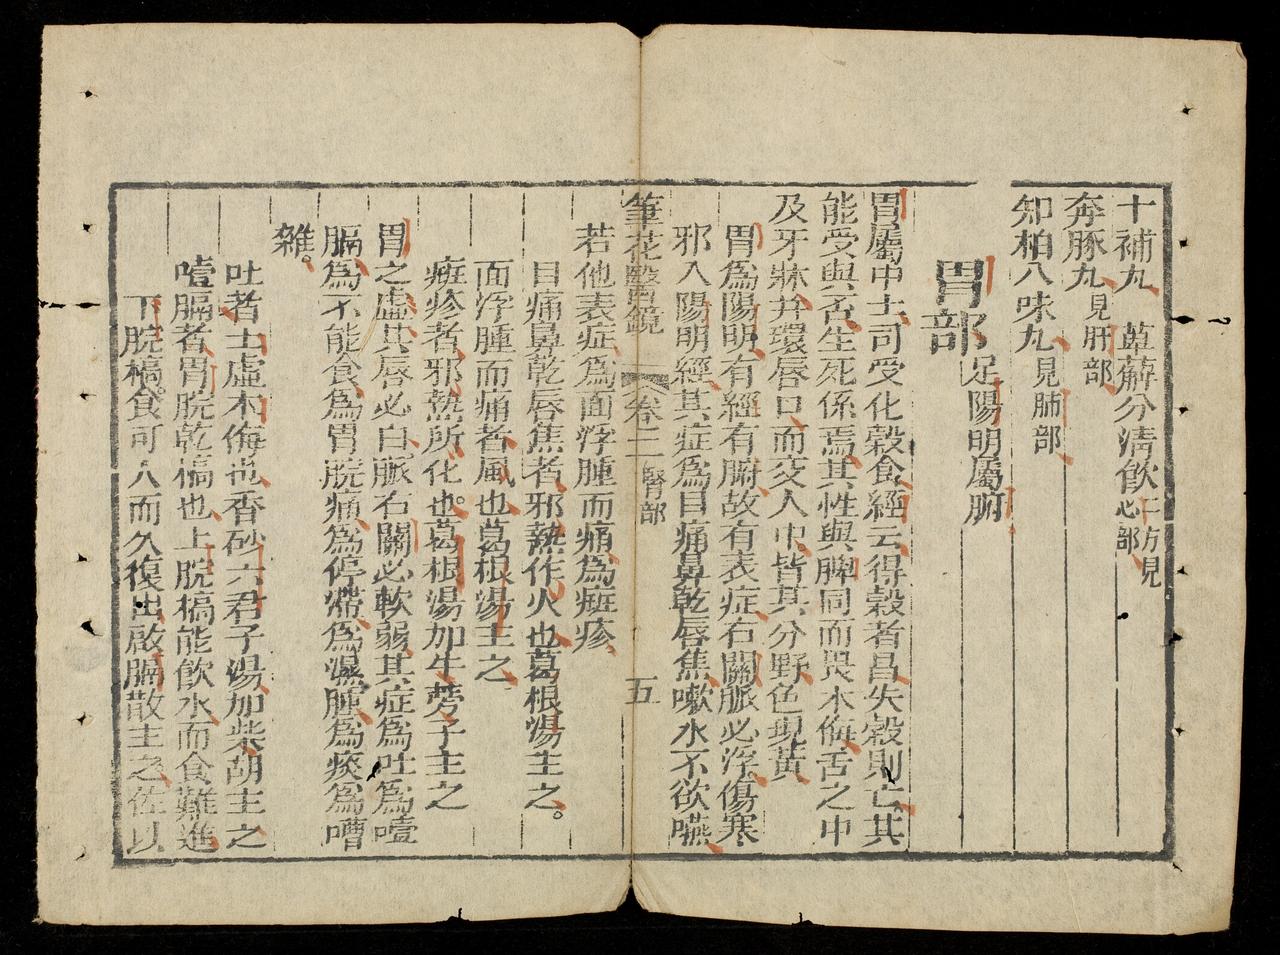 十補丸　萆薢分清飲二方見心部
奔豚丸見肝部
知柏八味丸見肺部
胃部足陽明屬腑
胃屬中土司受化穀食經云得穀者昌失穀則亡其
能受與否生死係焉其性與脾同而畏木侮舌之中
及牙牀并環唇口而交人中皆其分野色現黃
胃爲陽明有經有腑故有表症右關脈必浮傷寒
邪入陽明經其症爲目痛鼻乾唇焦嗽水不欲嚥
筆花醫鏡　卷二　腎部　五
若他表症爲面浮腫而痛爲癍疹
目痛鼻乾唇焦者邪熱作火也葛根湯主之。
面浮腫而痛者風也葛根湯主之
癍疹者邪熱所化也。葛根湯加牛蒡子主之
胃之虛其唇必白脈右關必軟弱其症爲吐爲噎
膈爲不能食爲胃脘痛爲停滯爲濕腫爲痰爲嘈
雜。
吐者土虛木侮也香砂六君子湯加柴胡主之
噎膈者胃脘乾槁也上脘槁能飲水而食難進
下脘槁食可入而久復出啟膈散主之佐以